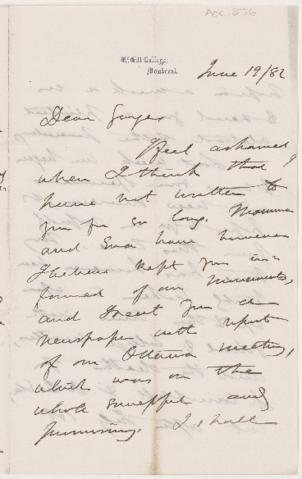 Acc-576
McGill College,
Montreal.
June 19/82
Dear George
I feel ashamed
when I think that I
have not written to
you for so long. Mamma
and Eva have however
I believe kept you in-
formed of our movements,
and I sent you a
newspaper with report
of our Ottawa meeting,
which was on the
whole successful and
promising. I shall